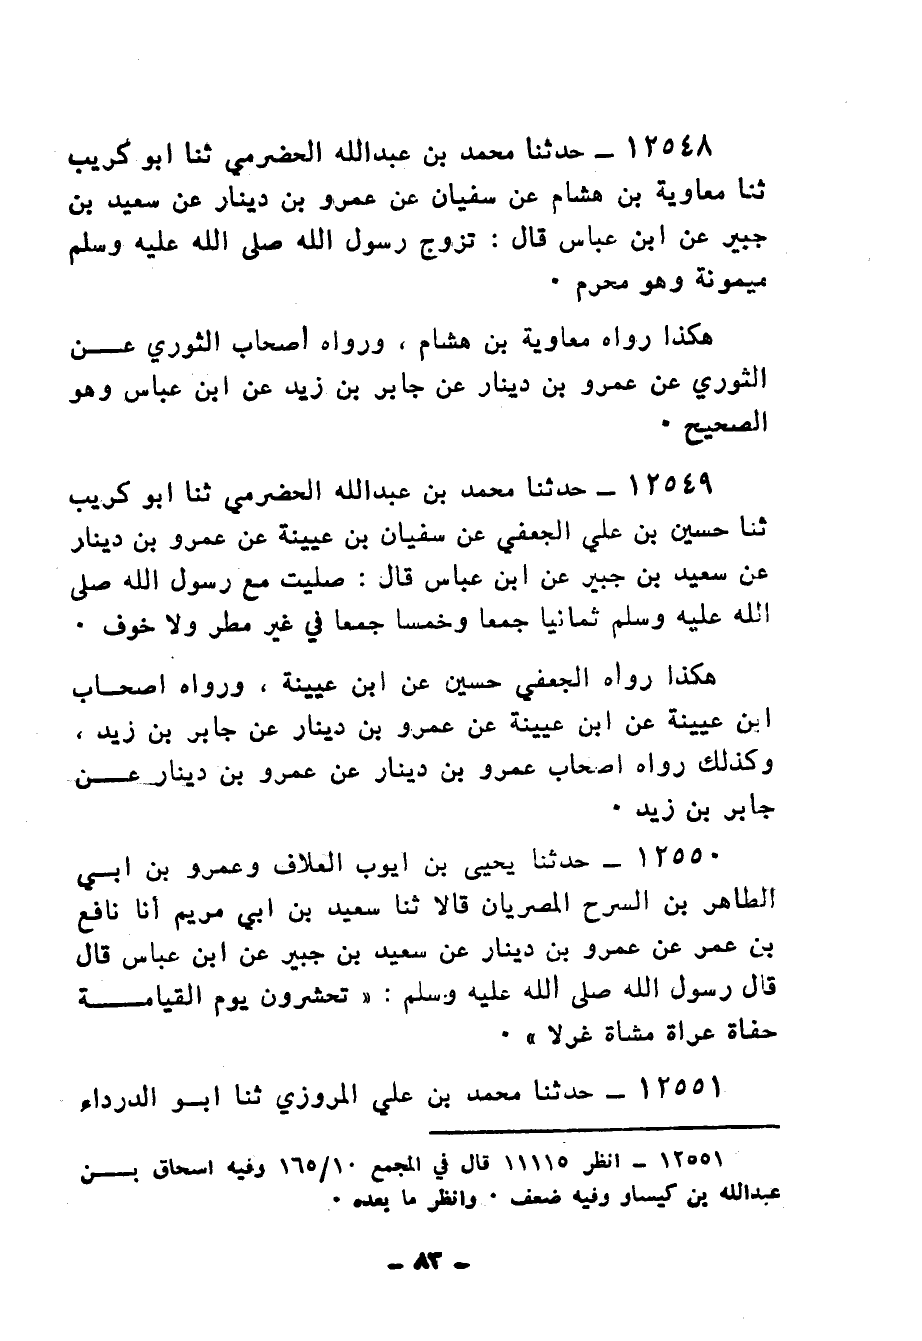 ١٢٥٤٨ ــ حدثنا محمد بن عبدالله الحضرمي ثنا ابو كريب
ثنا معاوية بن هشام عن سفيان عن عمرو بن دينار عن سعيد بن
جبير عن ابن عباس قال : تزوج رسول الله صلى الله عليه وسلم
ميمونة وهو محرم ٠
هكذا رواه معاوية بن هشام ، ورواه أصحاب الثوري عــن
الثوري عن عمرو بن دينار عن جابر بن زيد عن ابن عباس وهو
الصحيح ٠
١٢٥٤٩ ــ حدثنا محمد بن عبدالله الحضرمي ثنا ابو كريب
ثنا حسين بن علي الجعفي عن سفيان بن عيينة عن عمرو بن دينار
عن سعيد بن جبير عن ابن عباس قال : صليت مع رسول الله صلى
الله عليه وسلم ثمانيا جمعا وخمسا جمعا في غير مطر ولا خوف ٠
هكذا رواه الجعفي حسين عن ابن عيينة ، ورواه اصحــاب
ابن عيينة عن ابن عيينة عن عمرو بن دينار عن جابر بن زيد ،
وكذلك رواه اصحاب عمرو بن دينار عن عمرو بن دينار عـــن
جابر بن زيد ٠
١٢٥٥٠ ــ حدثنا يحيى بن ايوب العلاف وعمرو بن ابــي
الطاهر بن السرح المصريان قالا ثنا سعيد بن ابي مريم أنا نافع
بن عمر عن عمرو بن دينار عن سعيد بن جبير عن ابن عباس قال
قال رسول الله صلى الله عليه وسلم : « تحشرون يوم القيامـــة
حفاة عراة مشاة غرلا » ٠
١٢٥٥١ ــ حدثنا محمد بن علي المروزي ثنا ابــو الدرداء
١٢٥٥١ ــ انظر ١١١١٥ قال في المجمع ١٦٥/١٠ وفيه اسحاق بــن
عبدالله بن كيسار وفيه ضعف ٠ وانظر ما بعده ٠
ــ ٨٣ ــ